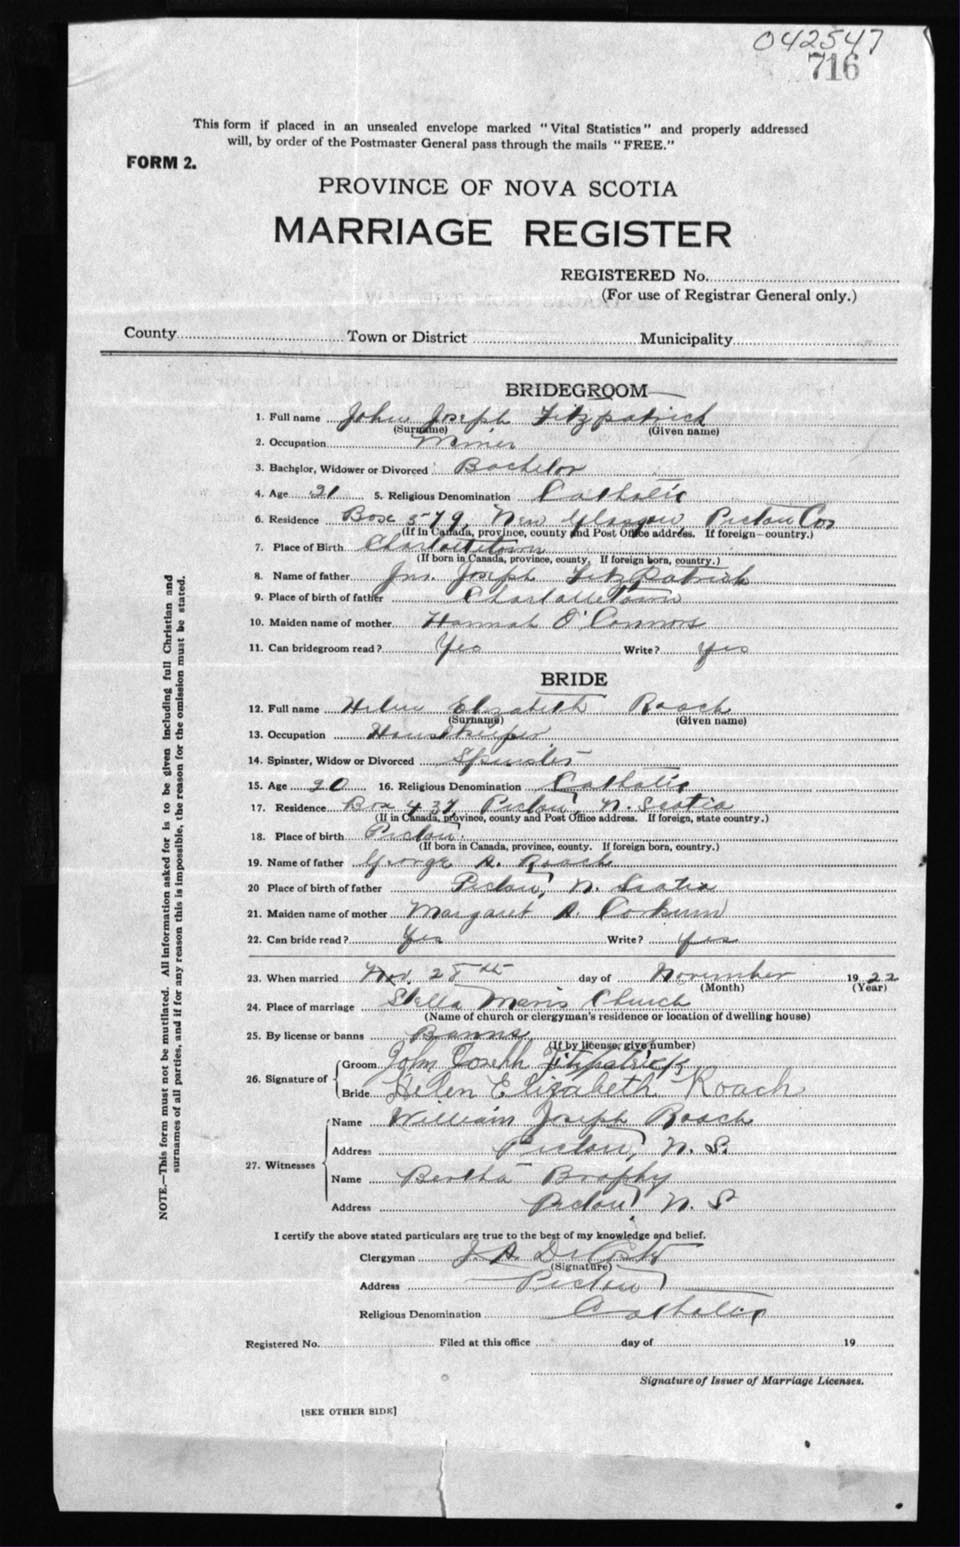 042547
716
This form if placed in an unsealed envelope marked "Vital Statistics" and properly addressed
will, by order of the Postmaster General pass through the mails "FREE."
FORM 2.
PROVINCE OF NOVA SCOTIA
MARRIAGE REGISTER
REGISTERED No.
(For use of Registrar General only.)
County Town or District Municipality
BRIDEGROOM
1. Full name John Joseph Fitzpatrick
(Surname) (Given name)
2. Occupation Miner
3. Bachelor, Widower or Divorced Bachelor
4. Age 21 5. Religious Denomination Catholic
6. Residence Box 579, New Glasgow Pictou Co
(If in Canada, province, county and Post Office address. If foreign—country.)
7. Place of Birth Charlottetown
(If born in Canada, province, county. If foreign born, country.)
8. Name of father Jno. Joseph Fitzpatrick
9. Place of birth of father Charlottetown
10. Maiden name of mother Hannah O'Connor
11. Can bridegroom read? Yes Write? yes
BRIDE
12. Full name Helen Elizabeth Roach
(Surname) (Given name)
13. Occupation Housekeeper
14. Spinster, Widow or Divorced Spinster
15. Age 20 16. Religious Denomination Catholic
17. Residence Box 437 Pictou N. Scotia
(If in Canada, province, county and Post Office address. If foreign, state country.)
18. Place of birth Pictou
(If born in Canada, province, county. If foreign born, country.)
19. Name of father George A. Roach
20 Place of birth of father Pictou, N. Scotia
21. Maiden name of mother Margaret A. Corkum
22. Can bride read? Yes Write? yes
23. When married Nov. 28th day of November 1922
(Month) (Year)
24. Place of marriage Stella Maris Church
(Name of church or clergyman's residence or location of dwelling house)
25. By license or banns Banns
(If by license, give number)
26. Signature of Groom John Joseph Fitzpatrick
Bride Helen Elizabeth Roach
27. Witnesses Name William Joseph Roach
Address Pictou, N. S.
Name Bertha Brophy
Address Pictou N. S
I certify the above stated particulars are true to the best of my knowledge and belief.
Clergyman J. A.
(Signature)
Address Pictou
Religious Denomination Catholic
Registered No. Filed at this office day of 19
Signature of Issuer of Marriage Licenses.
[SEE OTHER SIDE]
NOTE.—This form must not be mutilated. All information asked for is to be given including full Christian and
surnames of all parties, and if for any reason this is impossible, the reason for the omission must be stated.